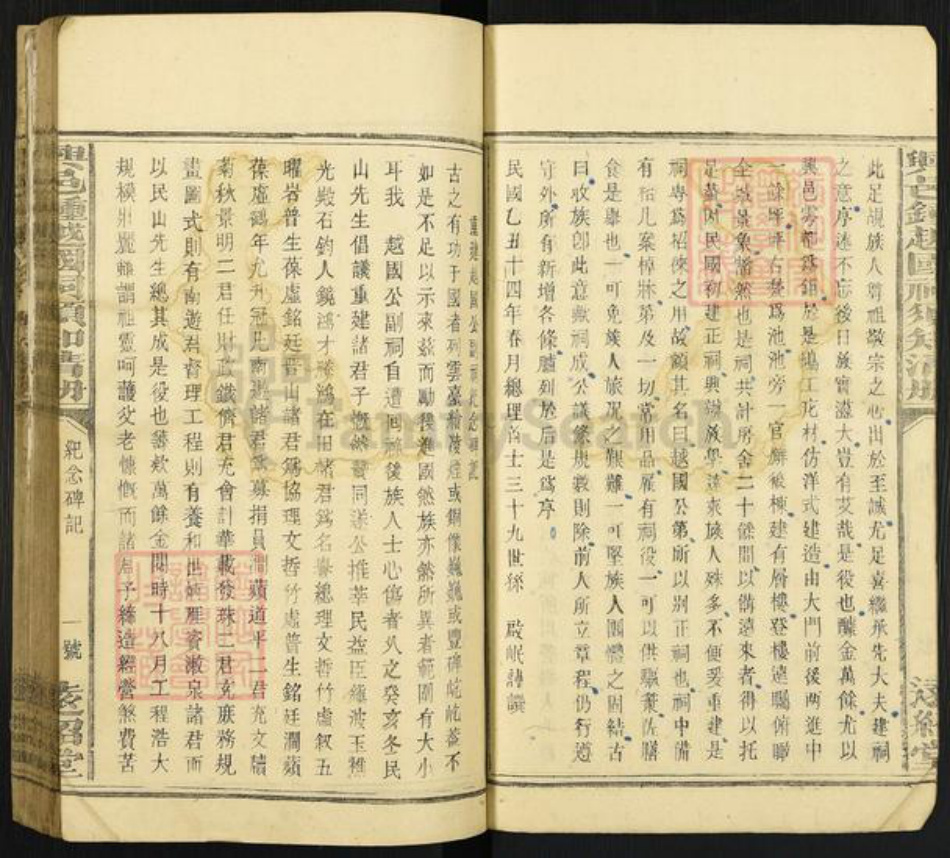 此足覘族人尊祖敬宗之忱出於至誠尤足喜繼承先大夫建祠
之意序述不忘後日發實滋大豈有艾哉是役也醵金萬餘尤以
興邑雲都為鉅於是鳩工庀材仿洋式建造由大門前後兩進中
一餘坪坪右鑿為池池旁一官廳後棟建有層樓登樓遠矚俯瞰
全城景象豁然也是祠共計房舍二十餘間以備遠來者得以托
足並附民國初建正祠興辦族學遠來族人殊多不便爰重建是
祠專為招徠之用故顏其名曰越國公第所以別正祠也祠中備
有枱几案棹牀第及一切常用品雇有祠役一可以供驅義佐膳
食是舉也一可免族人旅況之艱難一可堅族人團體之固結古
曰收族卽此意歟祠成公議條規數則除前人所立章程仍行遵
守外所有新增各條臚列於后是為序
民國乙丑十四年春月總理 士三十九世孫 啟岷謹譔
重建越國公副祠紀念碑記
古之有功于國者列雲臺繪凌煙或銅像巍巍或豐碑屹屹蓋不
如是不足以示來茲而勵後進國然族亦然所異者範圍有大小
耳我 越國公副祠自遭回祿後族人士心傷者久之癸亥冬民
山先生倡議重建諸君子慨然贊同遂公推萃民益臣鍾波玉裡
光殿石鈞人鏡鴻才 鴻在田諸君為名譽總理文哲竹虛叙五
曜岩普生葆虛銘廷晉山諸君為協理文哲竹虛普生銘廷瀾蘋
葆虛鶴年允升冠凡南遊諸君為募捐員潤蘋道平二君充文牘
菊秋景明二君任財政鐵儕君充會計華載發珠二君充庶務規
畫圖式則有南遊君督理工程則有養和世 雁賓漱泉諸君而
以民山先生總其成是役也醵欵萬餘金閱時十八月工程浩大
規模壯麗雖謂祖靈呵護父老慷慨而諸君子締造經營煞費苦
紀念碑記
一號